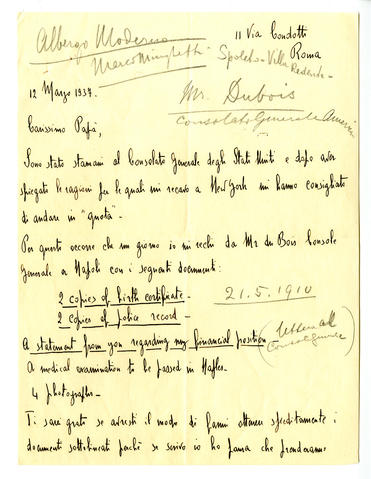 Albergo Moderno
Marco Minghetti
11 Via Condotti
Roma
Spoleto - Villa Redenta -
12 Marzo 1937.
Mr. Dubois
Consolato Generale America
Carissimo Papà,
Sono stato stamani al Consolato Generale degli Stati Uniti e dopo aver
spiegate le ragioni per le quali mi recavo a New York mi hanno consigliato
di andare in "quota" -
Per questo occorre che un giorno io mi rechi da Mr du Bois Console
Generale a Napoli con i seguenti documenti:
2 copies of birth certificate - 21.5.1910
2 copies of police record -
A statement from you regarding my financial position (lettera al Console Generale)
A medical examination to be passed in Naples.
4 photographs -
Ti sarei grato se avresti il modo di farmi ottenere speditamente i
documenti sottolineati poichè se scrivo io ho paura che prenderanno